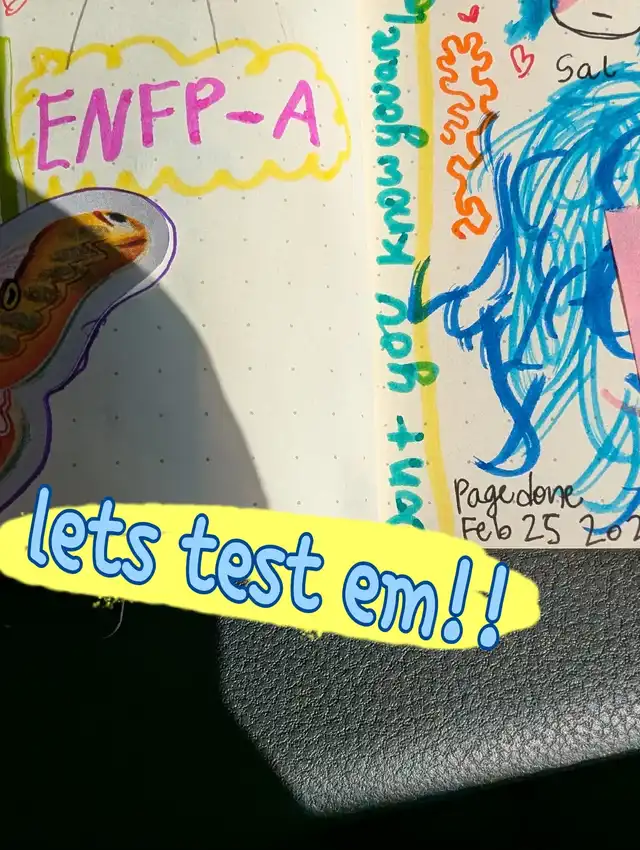 ENFP-A
Don't you know you are
Sal
Page done
Feb 25 202
lets test em!!